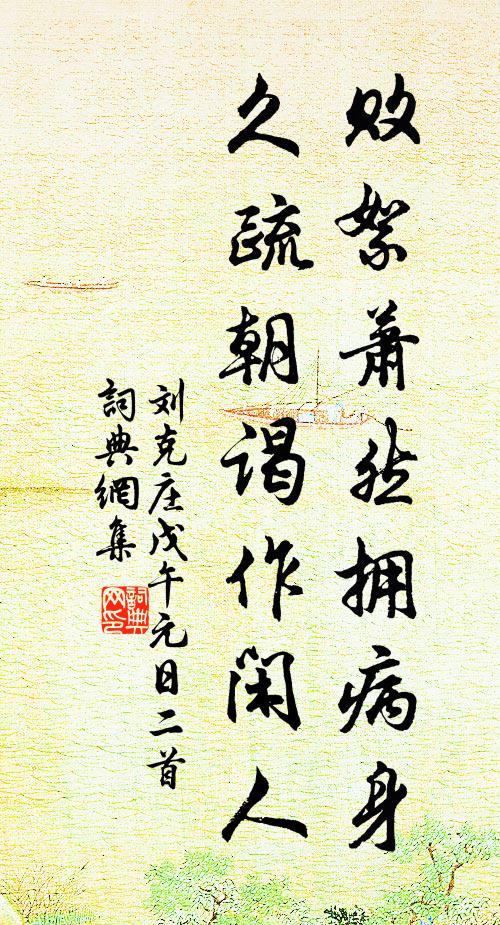 败絮萧然拥病身
久疏朝谒作闲人
刘克庄戊午元日二首
詞典網集
詞典
网印